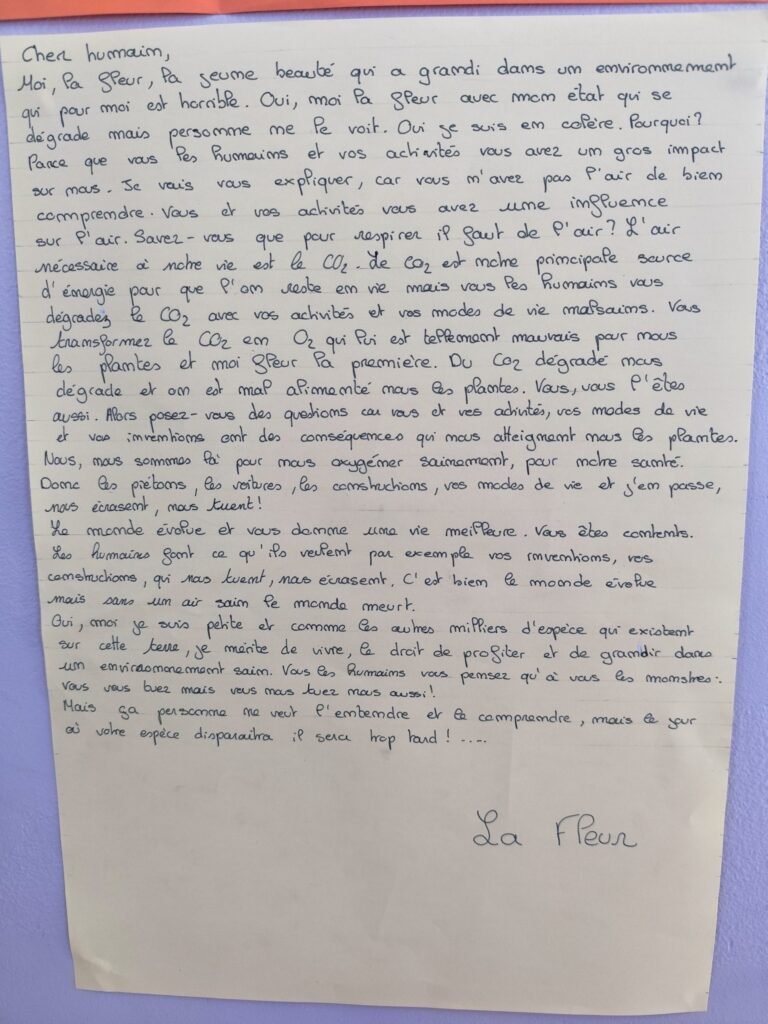 Cher humain,
Moi, la fleur, la jeune beauté qui a grandi dans un environnement
qui pour moi est horrible. Oui, moi la fleur avec mon état qui se
dégrade mais personne ne le voit. Oui je suis en colère. Pourquoi?
Parce que vous les humains et vos activités vous avez un gros impact
sur nous. Je vais vous expliquer, car vous m'avez pas l'air de bien
comprendre. Vous et vos activités vous avez une influence
sur l'air. Savez-vous que pour respirer il faut de l'air? L'air
nécessaire à notre vie est le CO2. Le CO2 est notre principale source
d'énergie pour que l'on reste en vie mais vous les humains vous
dégradez le CO2 avec vos activités et vos modes de vie malsains. Vous
transformez le CO2 en O2 qui lui est tellement mauvais pour nous
les plantes et moi fleur la première. Du CO2 dégradé nous
dégrade et on est mal alimenté nous les plantes. Vous, vous l'êtes
aussi. Alors posez-vous des questions car vous et vos activités, vos modes de vie
et vos inventions ont des conséquences qui nous atteignent nous les plantes.
Nous, nous sommes là pour nous oxygéner sainement, pour notre santé.
Donc les piétons, les voitures, les constuctions, vos modes de vie et j'en passe,
nous écrasent, nous tuent!
Le monde évolue et vous donne une vie meilleure. Vous êtes contents.
Les humaines font ce qu'ils veulent par exemple vos inventions, vos
constuctions, qui nous tuent, nous écrasent. C'est bien le monde évolue
mais sans un air sain le monde meurt.
Oui, moi je suis petite et comme les autres milliers d'espèce qui existent
sur cette terre, je mérite de vivre, le droit de profiter et de grandir dans
un environnement sain. Vous les humains vous pensez qu'à vous les monstres:
vous vous tuez mais vous nous tuez nous aussi!
Mais ça personne ne veut l'entendre et le comprendre, mais le jour
où votre espèce disparaîtra il sera trop tard! .....
La Fleur